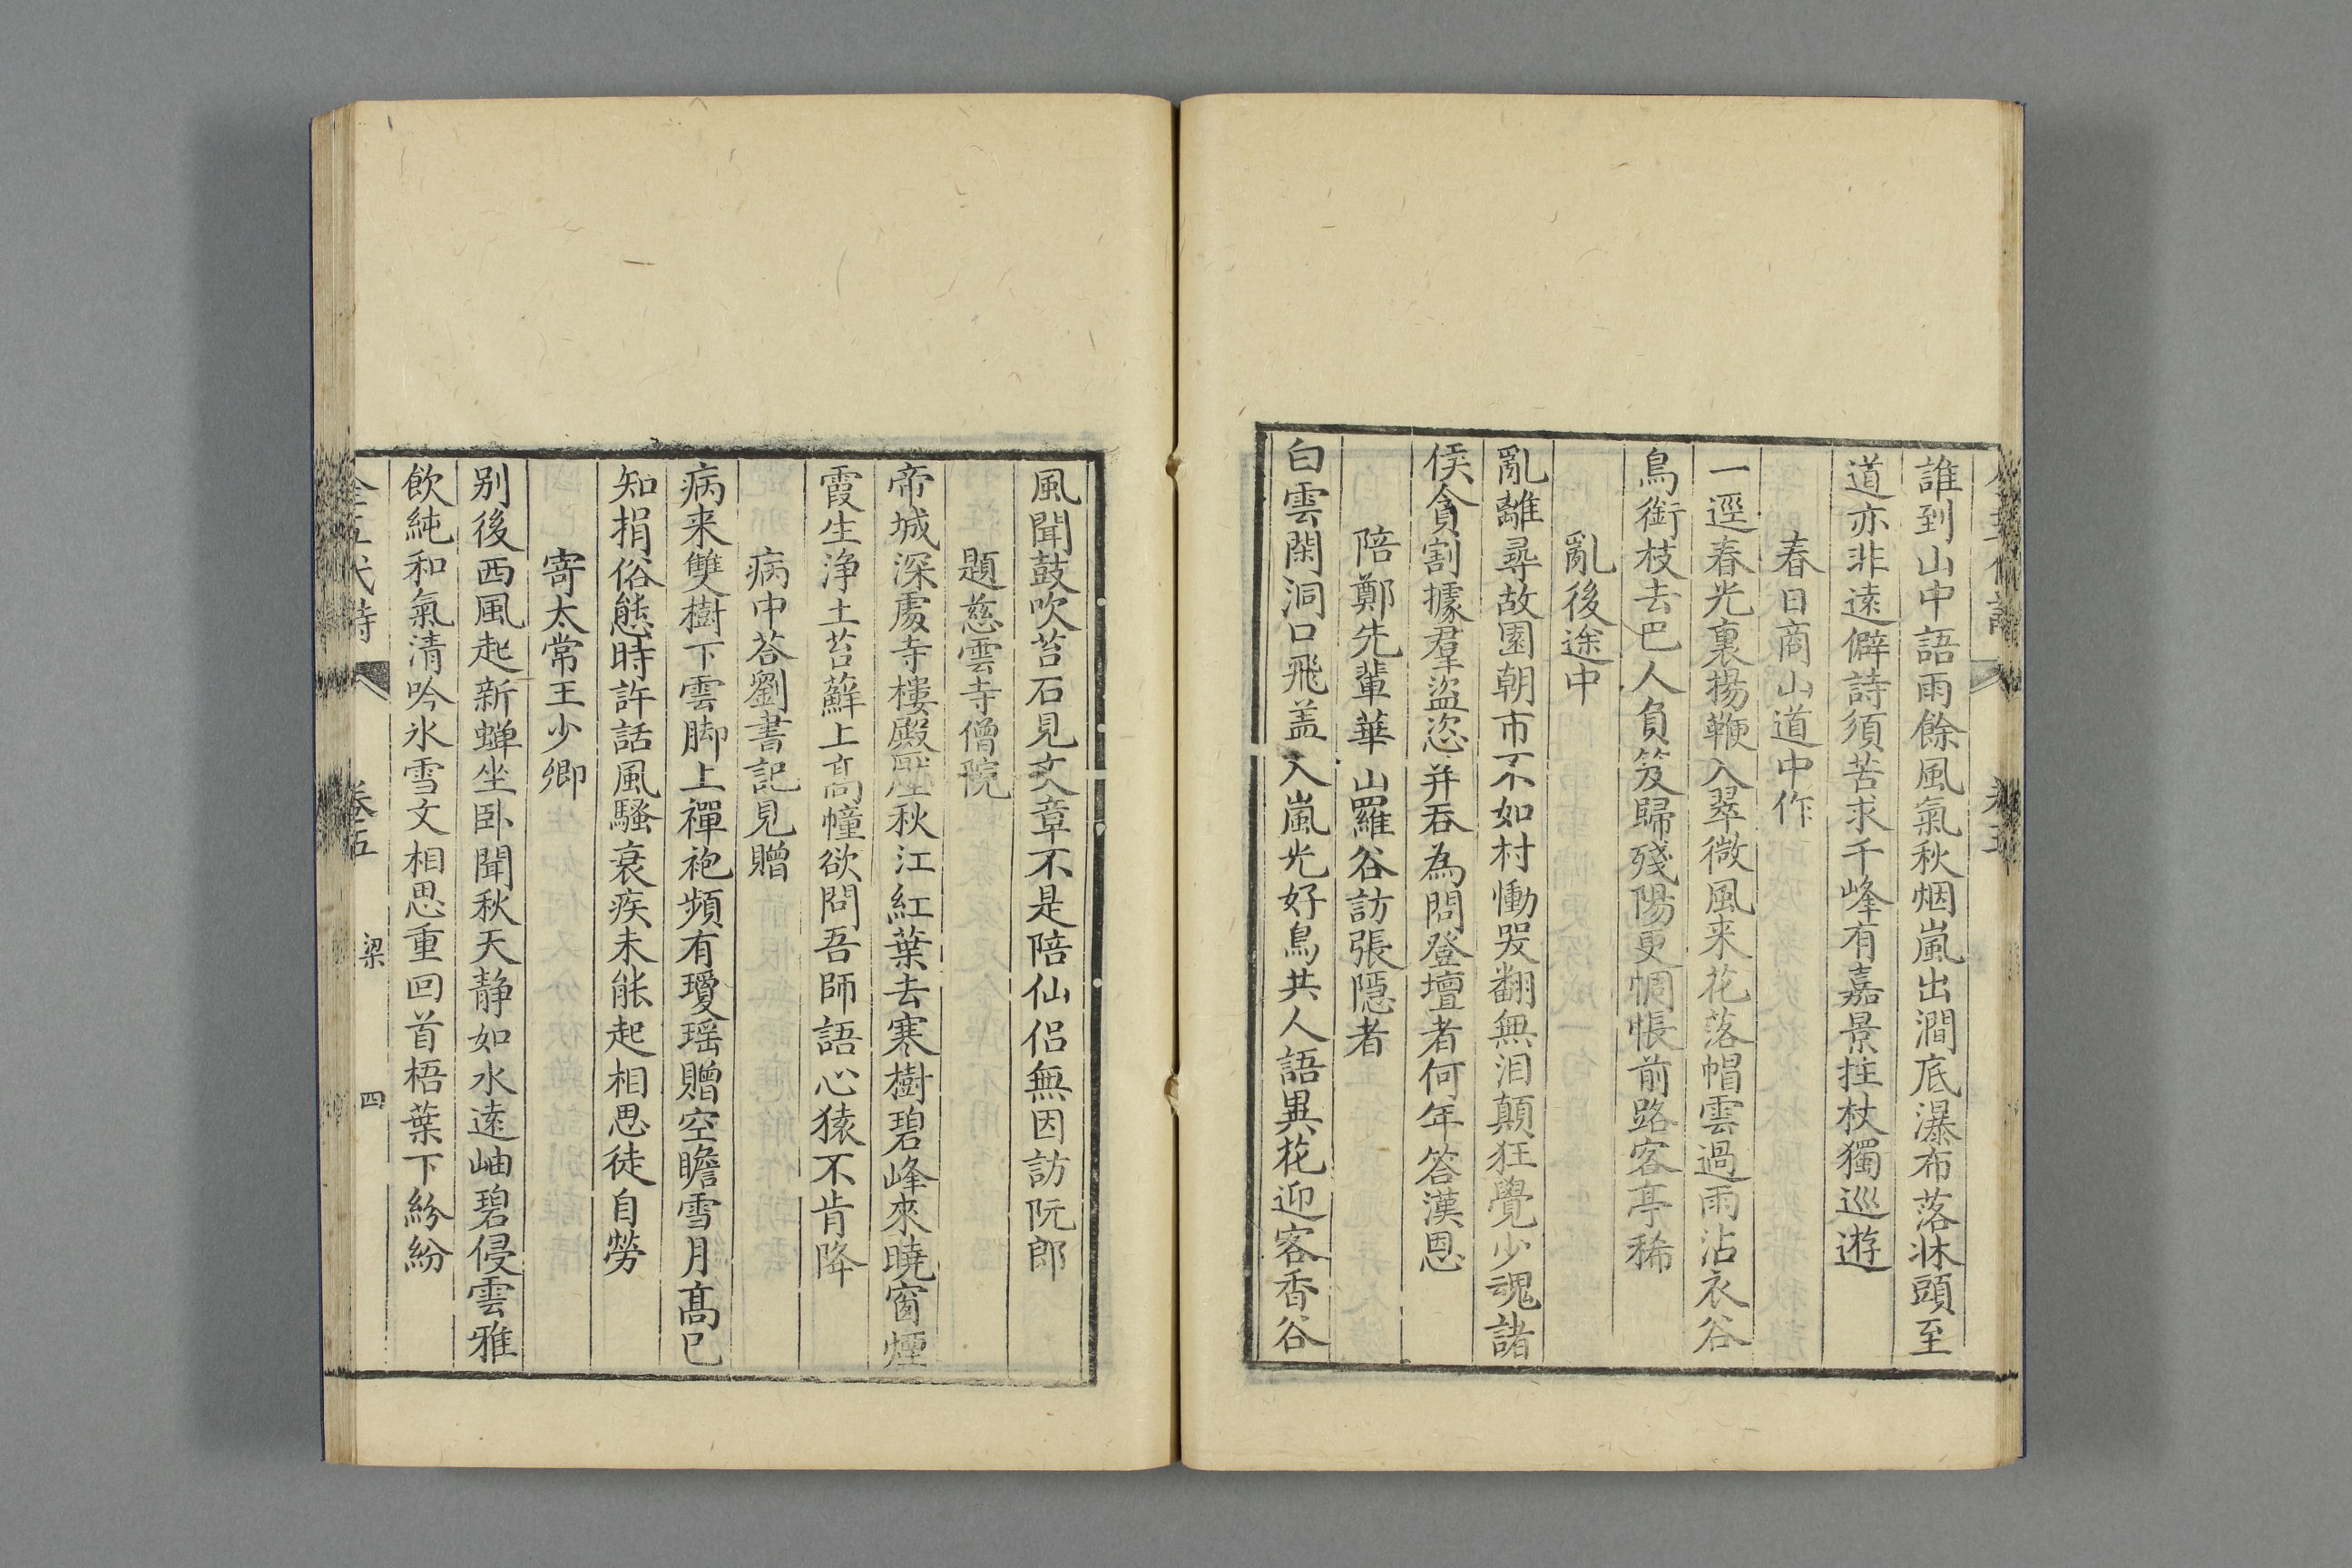 誰到山中語雨餘風氣秋烟嵐出澗底瀑布落牀頭至
道亦非遠僻詩須苦求千峰有嘉景拄杖獨巡遊
春日商山道中作
一逕春光裏揚鞭入翠微風来花落帽雲過雨沾衣谷
鳥銜枝去巴人負笈歸殘陽更惆悵前路客亭稀
亂後途中
亂離尋故園朝市不如村慟哭翻無淚顛狂覺少魂諸
侯貪割據羣盜恣并吞為問登壇者何年答漢恩
陪鄭先輩華山羅谷訪張隱者
白雲閑洞口飛盖入嵐光好鳥共人語異花迎客香谷
風聞鼓吹苔石見文章不是陪仙侣無因訪阮郎
題慈雲寺僧院
帝城深處寺樓殿壓秋江紅葉去寒樹碧峰來曉窗煙
霞生浄土苔蘚上高幢欲問吾師語心猿不肯降
病中答劉書記見贈
病来雙樹下雲脚上禪袍頻有瓊瑶贈空瞻雪月髙已
知捐俗態時許話風騷衰疾未能起相思徒自勞
寄太常王少卿
别後西風起新蝉坐卧聞秋天静如水遠岫碧侵雲雅
飲純和氣清吟氷雪文相思重回首梧葉下紛紛
全五代詩 卷五 梁 四